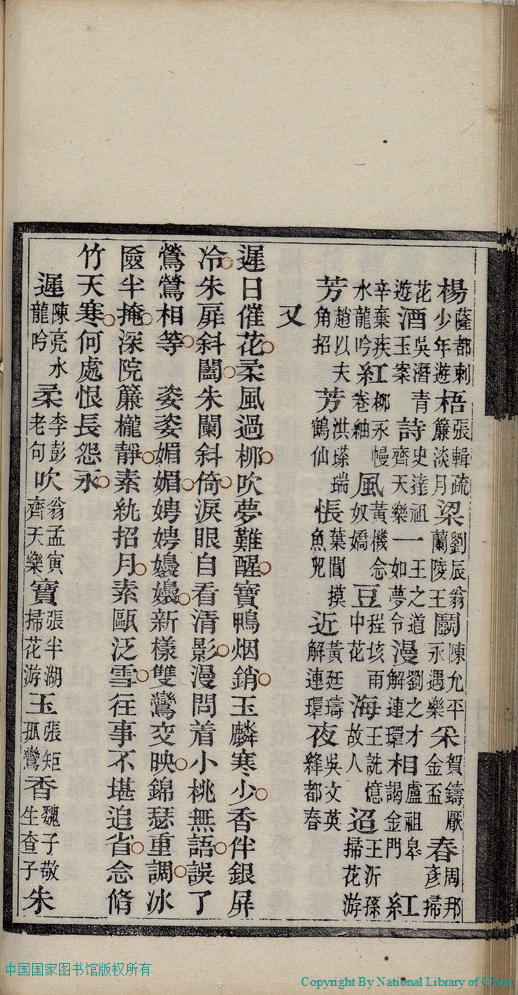 楊薩都剌少年遊梧張輯疏簾淡月梁劉辰翁蘭陵王闘陳允平永遇樂采賀鑄厭金盃春周邦彥掃
花遊酒吳潛青玉案詩史達祖齊天樂一王之道如夢令漫劉之才解連環相盧祖皋謁金門紅
辛棄疾水龍吟紅柳永慢卷紬風黃機念奴嬌豆程垓雨中花海王詵憶故人迢王沂孫掃花游
芳趙以夫角招芳洪瑹瑞鶴仙悵葉閶摸魚兒近黃廷璹解連環夜吳文英絳都春
又
遲日催花柔風過柳吹夢難醒寶鴨烟銷玉麟寒少香伴銀屏
冷朱扉斜闔朱闌斜倚淚眼自看清影漫問着小桃無語誤了
鶯鶯相等　姿姿媚媚娉娉嬝嬝新樣雙鸞交映錦瑟重調冰
匳半掩深院簾櫳靜素紈招月素甌泛雪往事不堪追省念脩
竹天寒何處恨長怨永
遲陳亮水龍吟柔李彭老句吹翁孟寅齊天樂寶張半湖掃花游玉張矩孤鸞香魏子敬生查子朱
中国国家图书馆版权所有
Copyright By National Library of China